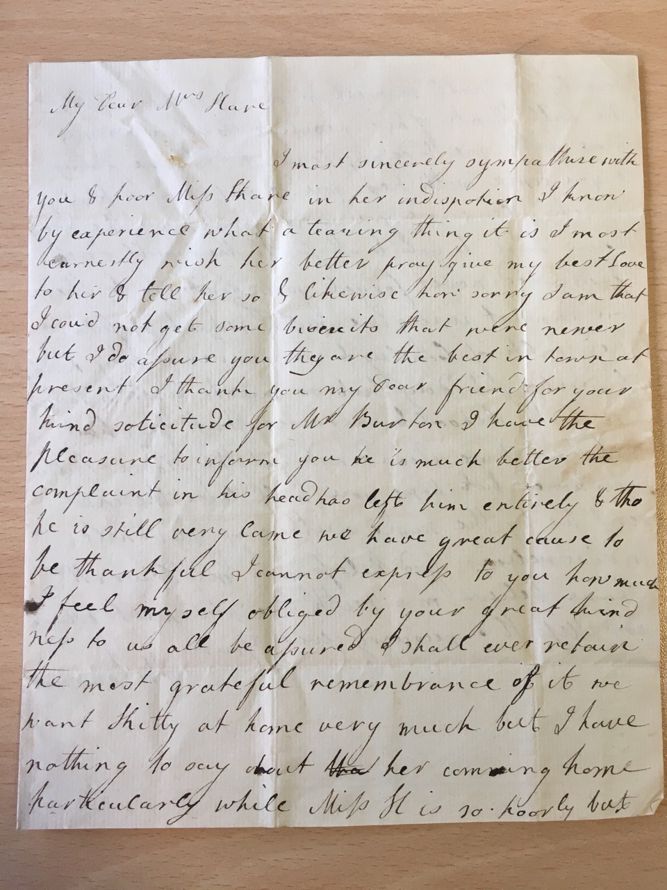 My Dear Mrs Hare
I most sincerely sympathise with
you & poor Miss Hare in her indispotion I know
by experience what a teazing thing it is I most
earnestly wish her better pray give my best Love
to her & tell her so & likewise how sorry I am that
I could not get some biscuits that were newer
but I do assure you they are the best in town at
present I thank you my Dear friend for your
kind solicitude for Mr Burton I have the
pleasure to inform you he is much better the
complaint in his head has left him entirely & tho
he is still very lame we have great cause to
be thankful I cannot express to you how much
I feel myself obliged by your great kind
ness to us all be assured I shall ever retain
the most grateful remembrance of it we
want at home very much but I have
nothing to say about her comming home
particularly while Miss H is so poorly but